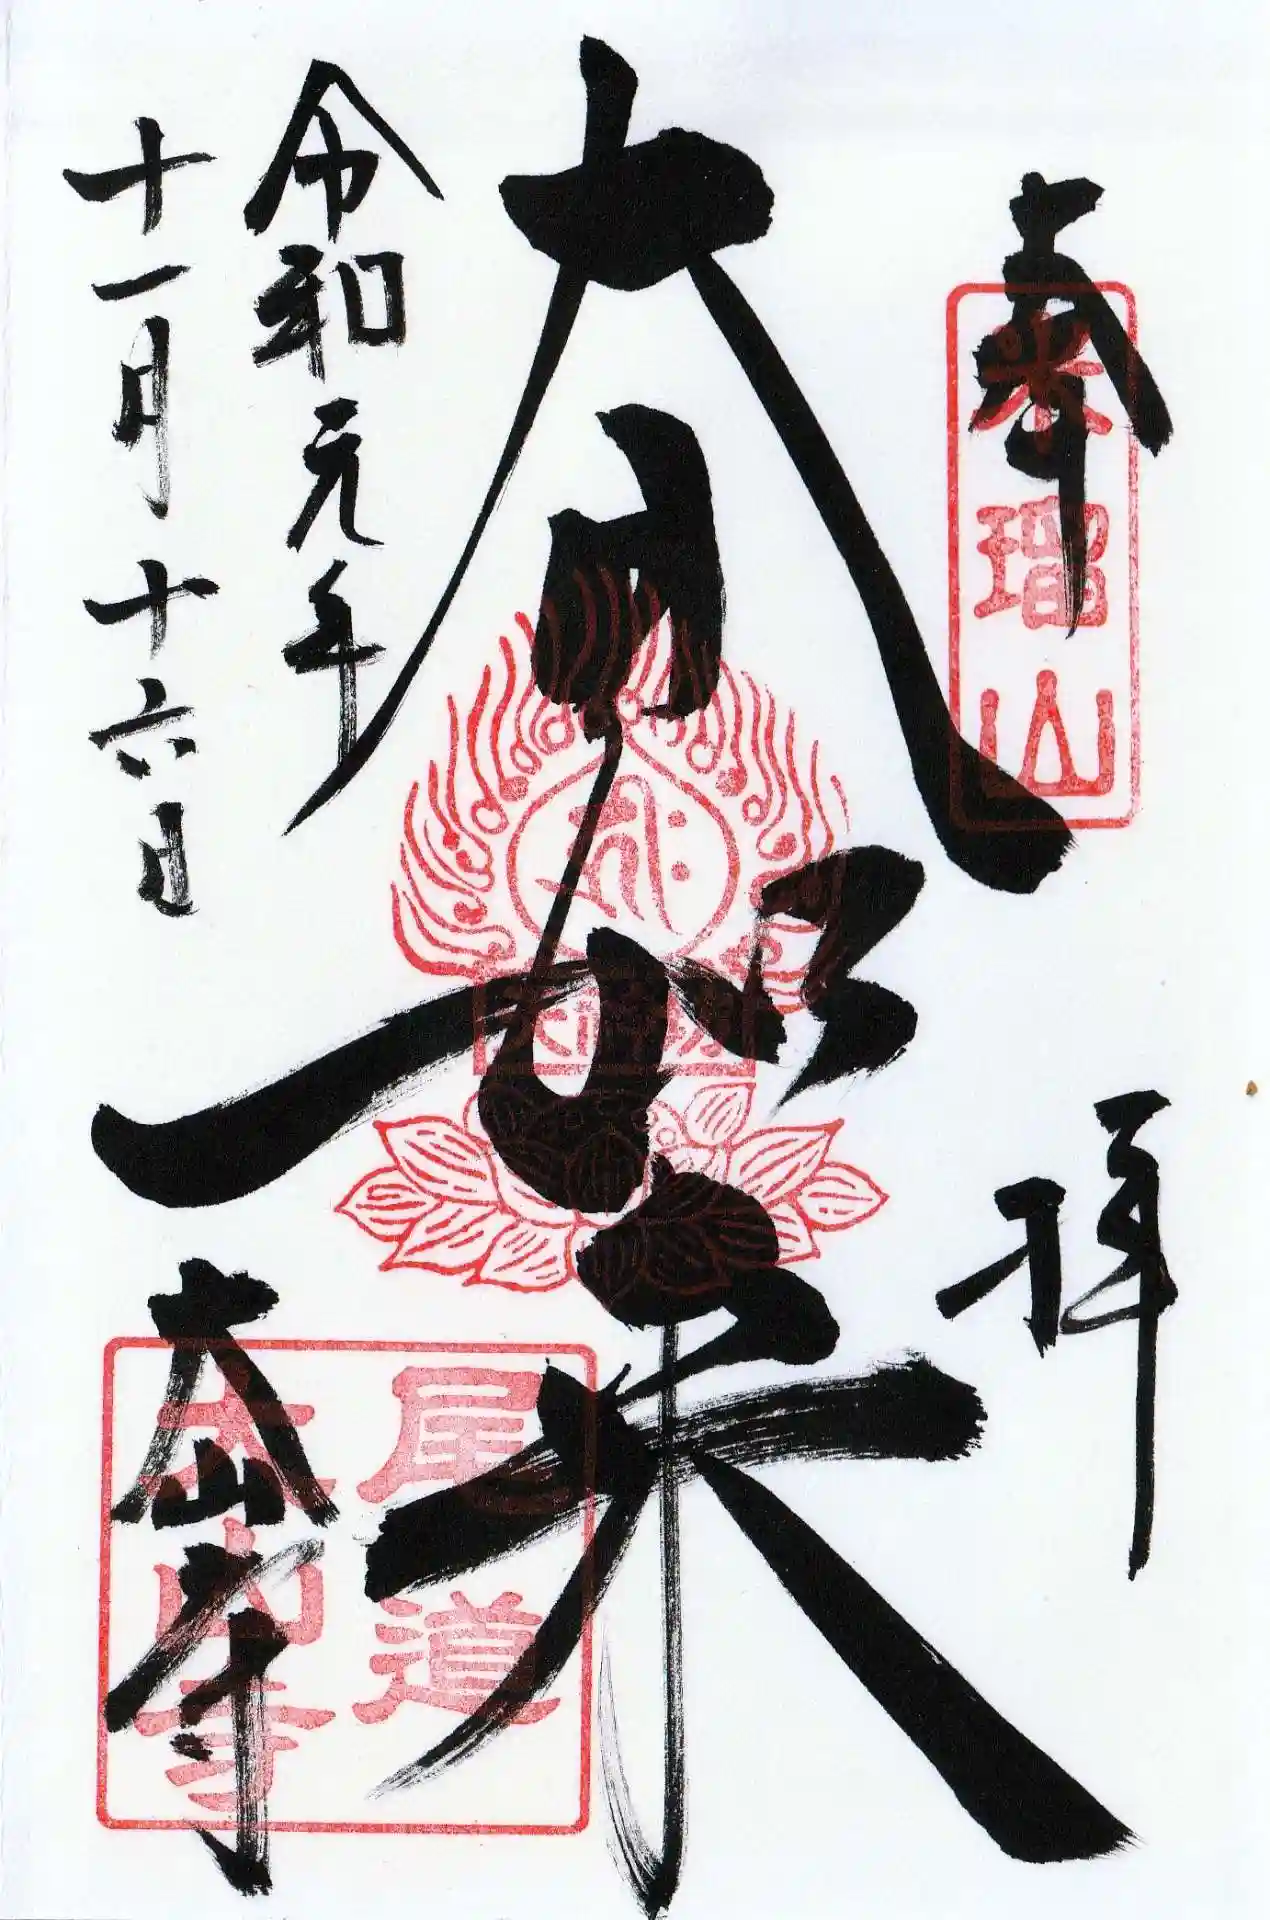 奉拝
摩瑠山
大日如来
令和元年
十一月十六日
尾道
大山寺
大山寺